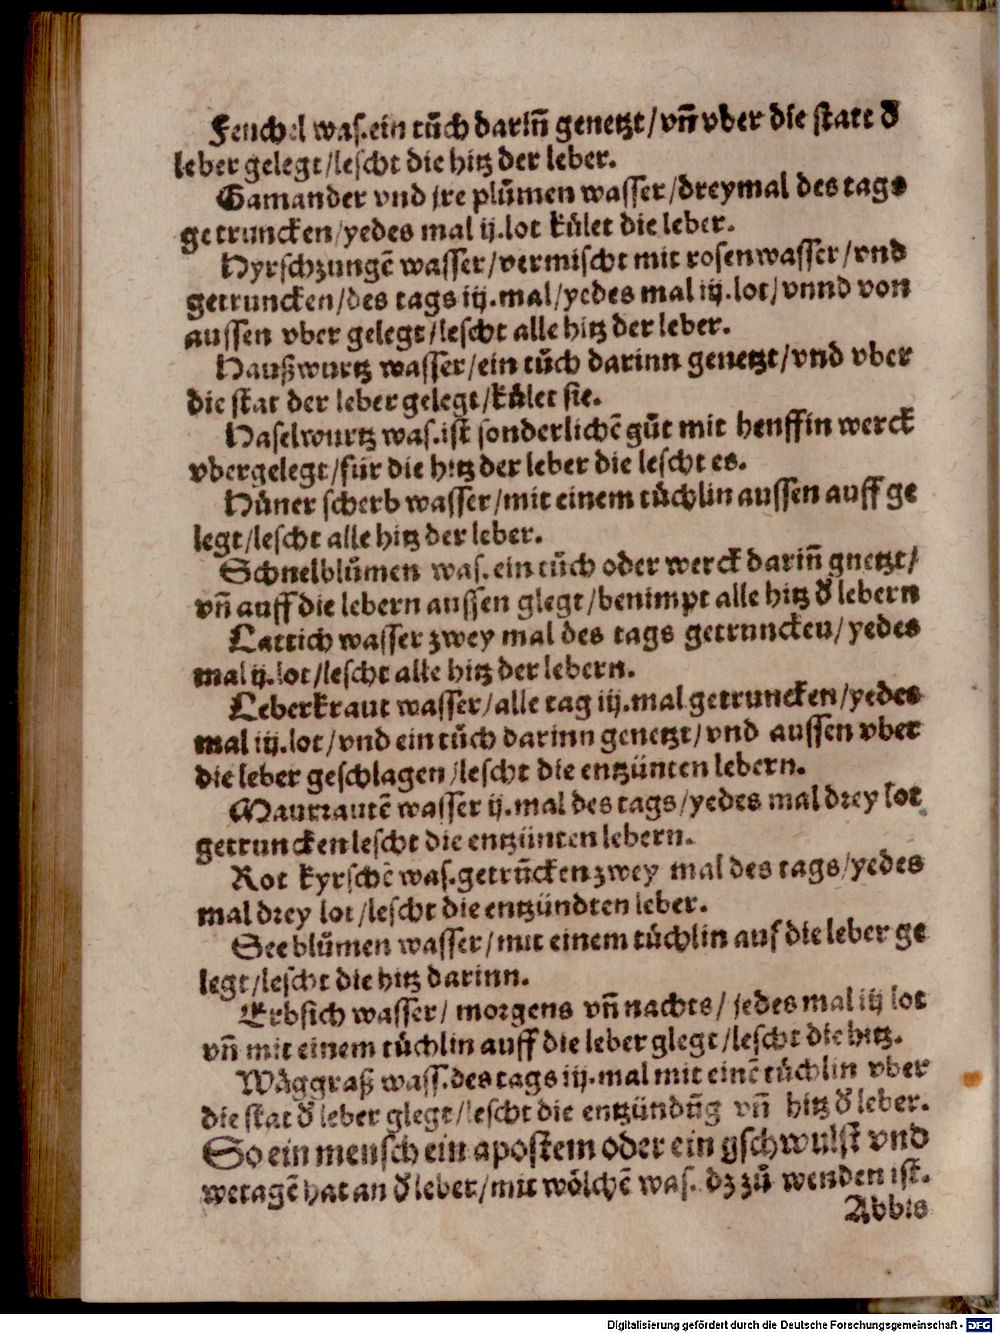 Fenchel was. ein tůch darin̄ genetzt/vn̄ vber die statt d͛
leber gelegt/lescht die hitz der leber.
Gamander vnd jre plůmen wasser/dreymal des tags
getruncken/yedes mal ij.lot kůlet die leber.
Hyrschzungē wasser/vermischt mit rosenwasser/vnd
getruncken/des tags iij.mal/yedes mal iij.lot/vnnd von
aussen vber gelegt/lescht alle hitz der leber.
Haußwurtz wasser/ein tůch darinn genetzt/vnd vber
die stat der leber gelegt/kůlet sie.
Haselwurtz was.ist sonderlichē gůt mit henffin werck
vbergelegt/für die hitz der leber die lescht es.
Hůner scherb wasser/mit einem tůchlin aussen auff ge
legt/lescht alle hitz der leber.
Schnelblůmen was. ein tůch oder werck darin̄ gnetzt/
vn̄ auff die lebern aussen glegt/benimpt alle hitz d͛ lebern
Lattich wasser zwey mal des tags getruncken/yedes
mal ij.lot/lescht alle hitz der lebern.
Leberkraut wasser/alle tag iij.mal getruncken/yedes
mal iij.lot/vnd ein tůch darinn genetzt/vnd aussen vber
die leber geschlagen/lescht die entzünten lebern.
Maurrautē wasser ij.mal des tags/yedes mal drey lot
getruncken lescht die entzünten lebern.
Rot kyrschē was.getrūcken zwey mal des tags/yedes
mal drey lot/lescht die entzündten leber.
Seeblůmen wasser/mit einem tůchlin auf die leber ge
legt/lescht die hitz darinn.
Erbsich wasser/ morgens vn̄ nachts/ jedes mal iij lot
vn̄ mit einem tůchlin auff die leber glegt/lescht die hitz.
Wåggraß wass.des tags iij.mal mit einē tůchlin vber
die stat d͛ leber glegt/lescht die entzündūg vn̄ hitz d͛ leber.
So ein mensch ein apostem oder ein gschwulst vnd
wetagē hat an d͛ leber/mit wölchē was. dz zů wenden ist.
Abbis
Digitalisierung gefördert durch die Deutsche Forschungsgemeinschaft - DFG